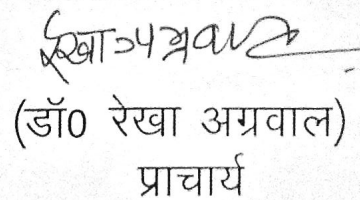 रेखा अग्रवाल
(डॉ0 रेखा अग्रवाल)
प्राचार्य